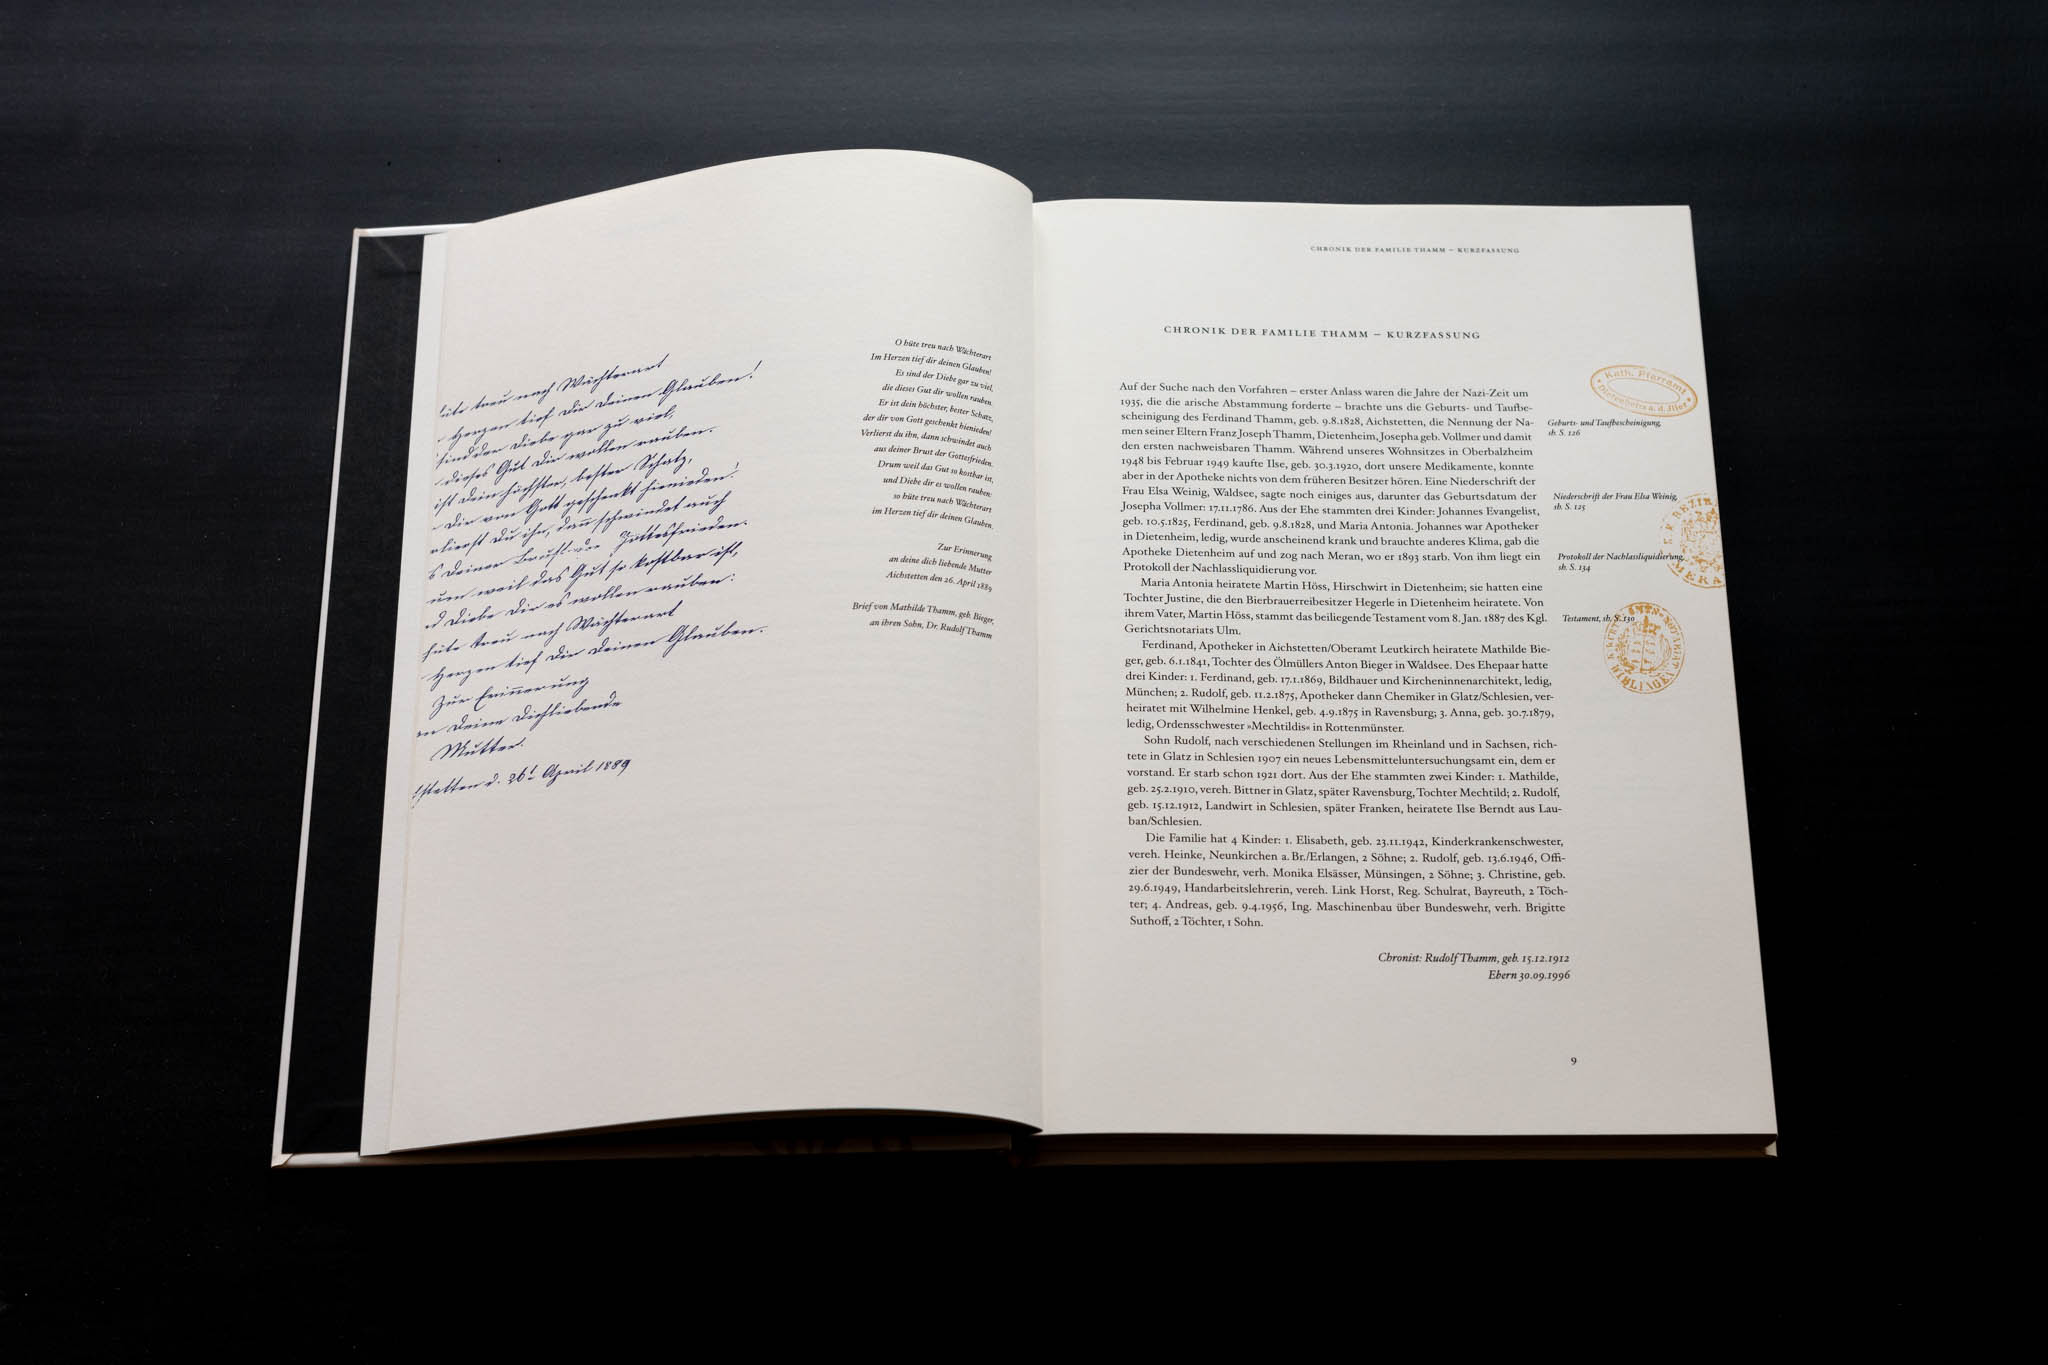 treu nach Wächterart
Herzen tief dir deinen Glauben!
sind der Diebe gar zu viel,
dieses Gut dir wollen rauben.
ist dein höchster, bester Schatz,
dir von Gott geschenkt hienieden!
du ihn, dann schwindet auch
deiner Brust der Gottesfrieden.
weil das Gut so kostbar ist,
Diebe dir es wollen rauben:
hüte treu nach Wächterart
Herzen tief dir deinen Glauben.
Zur Erinnerung
deine dichliebende
Mutter.
d. 26t April 1889
O hüte treu nach Wächterart
Im Herzen tief dir deinen Glauben!
Es sind der Diebe gar zu viel,
die dieses Gut dir wollen rauben.
Er ist dein höchster, bester Schatz,
der dir von Gott geschenkt hienieden!
Verlierst du ihn, dann schwindet auch
aus deiner Brust der Gottesfrieden.
Drum weil das Gut so kostbar ist,
und Diebe dir es wollen rauben:
so hüte treu nach Wächterart
im Herzen tief dir deinen Glauben.
Zur Erinnerung
an deine dich liebende Mutter
Aichstetten den 26. April 1889
Brief von Mathilde Thamm, geb. Bieger,
an ihren Sohn, Dr. Rudolf Thamm
CHRONIK DER FAMILIE THAMM – KURZFASSUNG
CHRONIK DER FAMILIE THAMM – KURZFASSUNG
Auf der Suche nach den Vorfahren – erster Anlass waren die Jahre der Nazi-Zeit um
1935, die die arische Abstammung forderte – brachte uns die Geburts- und Taufbe-
scheinigung des Ferdinand Thamm, geb. 9.8.1828, Aichstetten, die Nennung der Na-
men seiner Eltern Franz Joseph Thamm, Dietenheim, Josepha geb. Vollmer und damit
den ersten nachweisbaren Thamm. Während unseres Wohnsitzes in Oberbalzheim
1948 bis Februar 1949 kaufte Ilse, geb. 30.3.1920, dort unsere Medikamente, konnte
aber in der Apotheke nichts von dem früheren Besitzer hören. Eine Niederschrift der
Frau Elsa Weinig, Waldsee, sagte noch einiges aus, darunter das Geburtsdatum der
Josepha Vollmer: 17.11.1786. Aus der Ehe stammten drei Kinder: Johannes Evangelist,
geb. 10.5.1825, Ferdinand, geb. 9.8.1828, und Maria Antonia. Johannes war Apotheker
in Dietenheim, ledig, wurde anscheinend krank und brauchte anderes Klima, gab die
Apotheke Dietenheim auf und zog nach Meran, wo er 1893 starb. Von ihm liegt ein
Protokoll der Nachlassliquidierung vor.
Maria Antonia heiratete Martin Höss, Hirschwirt in Dietenheim; sie hatten eine
Tochter Justine, die den Bierbrauereibesitzer Hegerle in Dietenheim heiratete. Von
ihrem Vater, Martin Höss, stammt das beiliegende Testament vom 8. Jan. 1887 des Kgl.
Gerichtsnotariats Ulm.
Ferdinand, Apotheker in Aichstetten/Oberamt Leutkirch heiratete Mathilde Bie-
ger, geb. 6.1.1841, Tochter des Ölmüllers Anton Bieger in Waldsee. Des Ehepaar hatte
drei Kinder: 1. Ferdinand, geb. 17.1.1869, Bildhauer und Kircheninnenarchitekt, ledig,
München; 2. Rudolf, geb. 11.2.1875, Apotheker dann Chemiker in Glatz/Schlesien, ver-
heiratet mit Wilhelmine Henkel, geb. 4.9.1875 in Ravensburg; 3. Anna, geb. 30.7.1879,
ledig, Ordensschwester »Mechtildis« in Rottenmünster.
Sohn Rudolf, nach verschiedenen Stellungen im Rheinland und in Sachsen, rich-
tete in Glatz in Schlesien 1907 ein neues Lebensmitteluntersuchungsamt ein, dem er
vorstand. Er starb schon 1921 dort. Aus der Ehe stammten zwei Kinder: 1. Mathilde,
geb. 25.2.1910, vereh. Bittner in Glatz, später Ravensburg, Tochter Mechtild; 2. Rudolf,
geb. 15.12.1912, Landwirt in Schlesien, später Franken, heiratete Ilse Berndt aus Lau-
ban/Schlesien.
Die Familie hat 4 Kinder: 1. Elisabeth, geb. 23.11.1942, Kinderkrankenschwester,
vereh. Heinke, Neunkirchen a. Br./Erlangen, 2 Söhne; 2. Rudolf, geb. 13.6.1946, Offi-
zier der Bundeswehr, verh. Monika Elsässer, Münsingen, 2 Söhne; 3. Christine, geb.
29.6.1949, Handarbeitslehrerin, vereh. Link Horst, Reg. Schulrat, Bayreuth, 2 Töch-
ter; 4. Andreas, geb. 9.4.1956, Ing. Maschinenbau über Bundeswehr, verh. Brigitte
Suthoff, 2 Töchter, 1 Sohn.
Chronist: Rudolf Thamm, geb. 15.12.1912
Ebern 30.09.1996
Kath. Pfarramt
Dietenheim a. d. Iller
Geburts- und Taufbescheinigung,
sh. S. 126
Niederschrift der Frau Elsa Weinig,
sh. S. 125
K.K. BEZIR
MERA
Protokoll der Nachlassliquidierung,
sh. S. 134
Testament, sh. S. 130
AMTS-NOTARIAT
WIBLINGEN
9